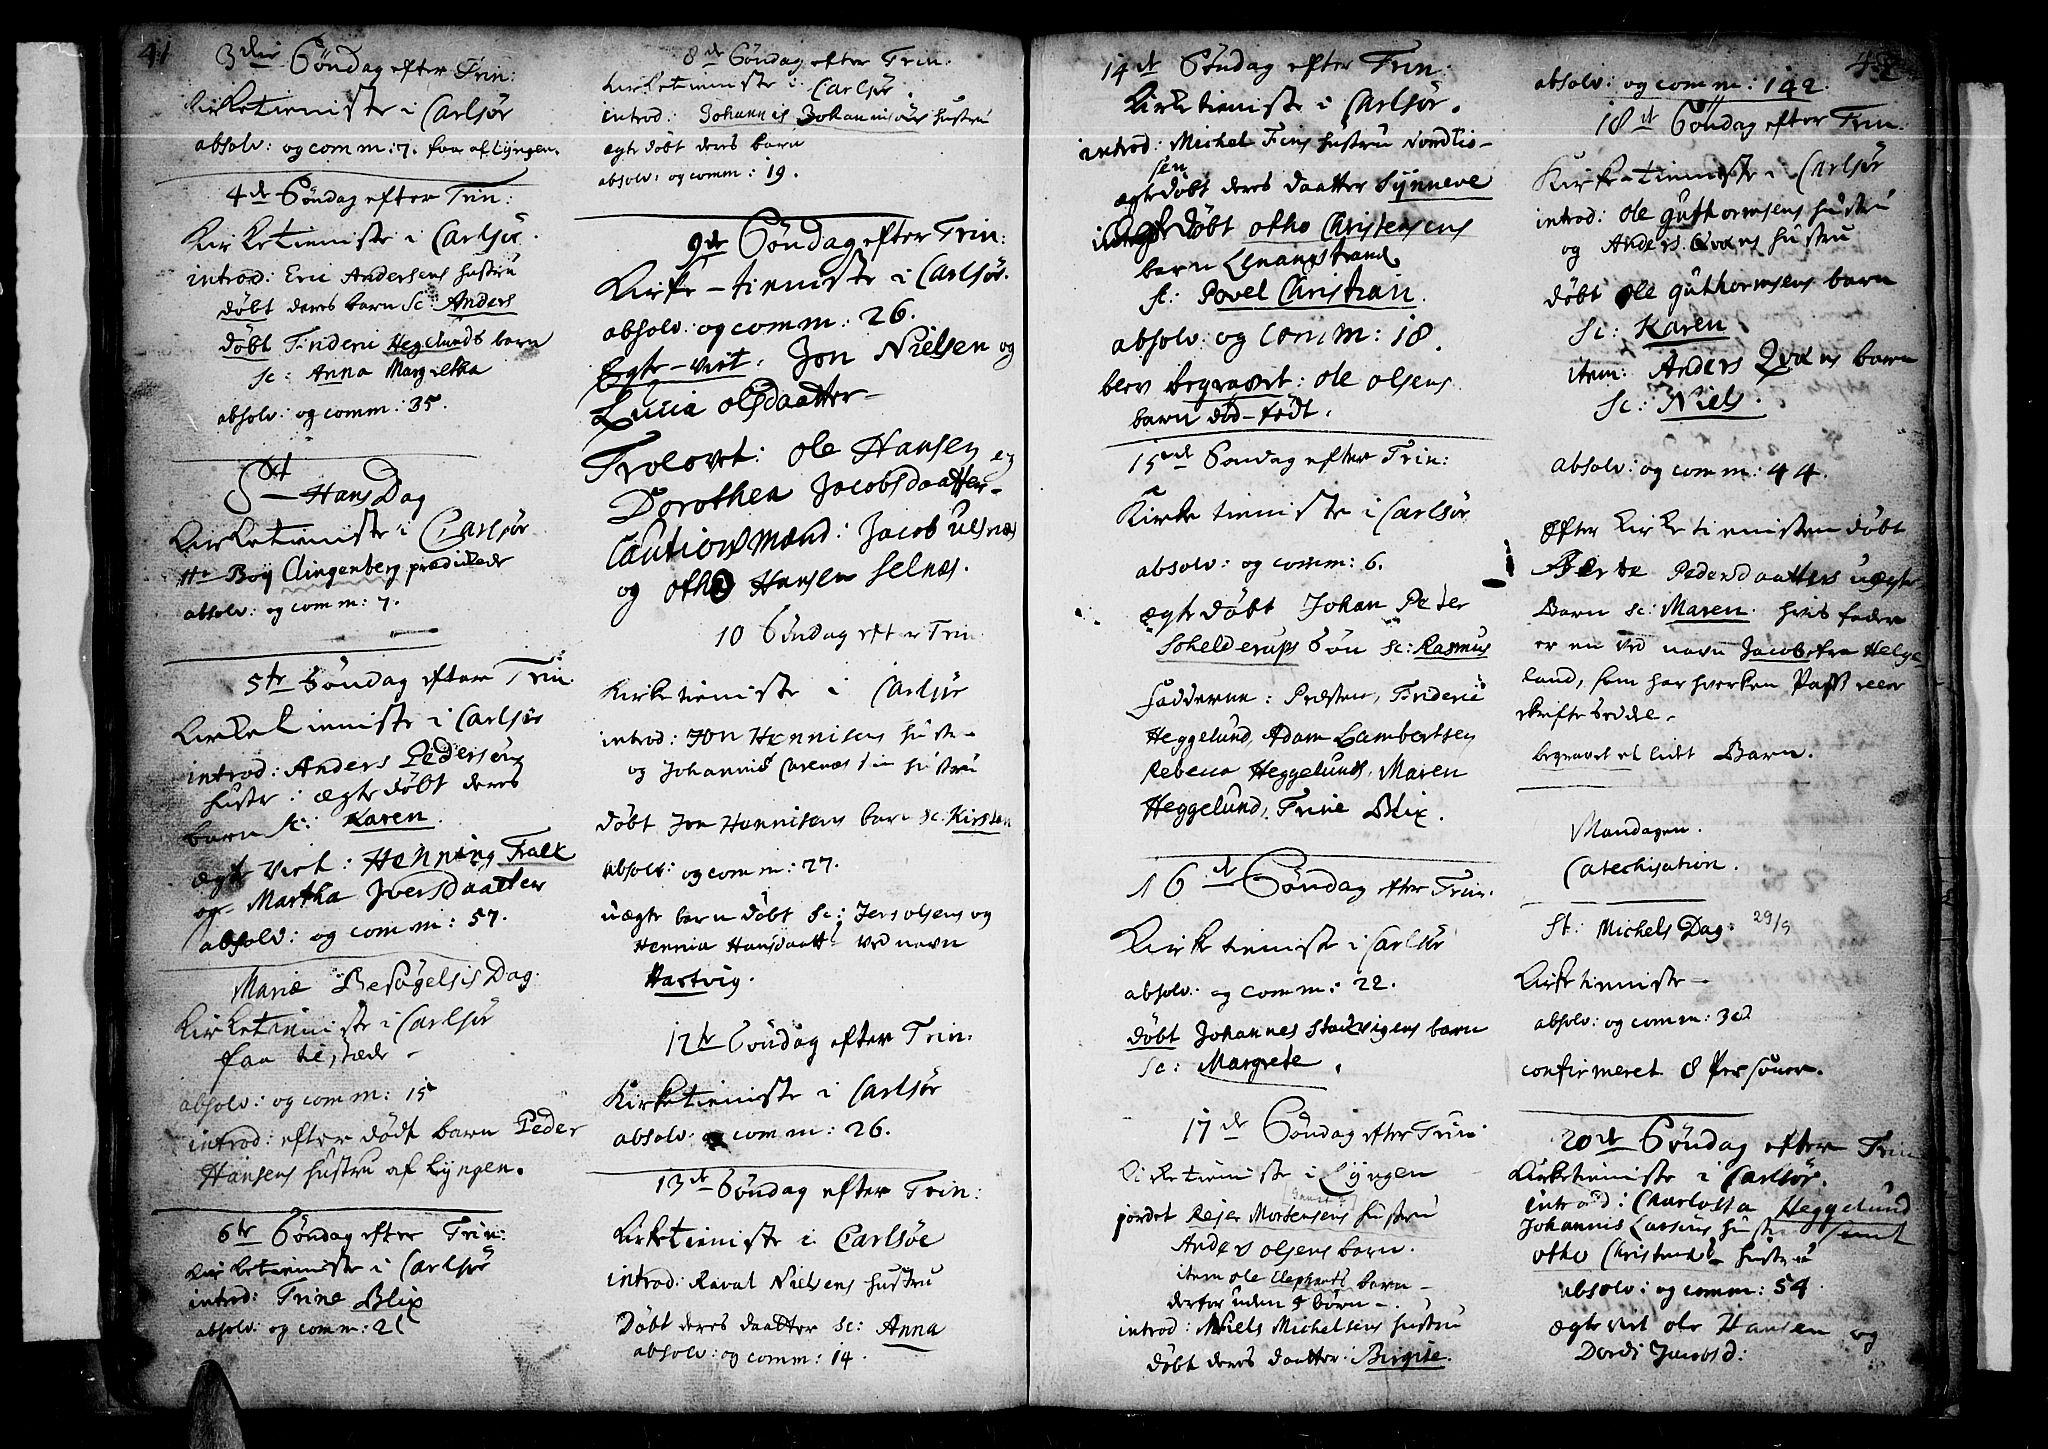 41
3die Söndag efter Trin:
Kirketieniste i Carlsör
absolv: og comm: 7. faar af Lyngen.
4de Söndag efter Trin:
Kirketieniste i Carlsör.
introd: Eric Andersens hustru
döbt deres barn sc: Anders
döbt Frideric Hegelunds barn
sc: Anna Margretha
absolv: og comm: 35.
St Hans Dag
Kirketieniste i Carlsör
Hr Boy Clingenberg prædikede
absolv: og comm: 7.
5te Söndag efter Trin.
Kirketieniste i Carlsör
introd: Anders Pedersens
hustr: ægte döbt deres
barn sc: Karen.
ægte viet: Henning Falk
og Martha Iversdaatter
absolv: og comm: 57.
Mariæ Besögelsis Dag.
Kirketieniste i Carlsör
faa tilstæde -
absolv: og comm: 15
introd: efter dödt barn Peder
Hansens hustru af Lyngen.
6te Söndag efter Trin:
Kirketieniste i Carlsör
introd: Trine Blix
absolv: og comm: 21
8de Söndag efter Trin:
Kirketieniste i Carlsör.
introd: Johannis Johannisöns hustru
ægte döbt deres barn
absolv: og comm: 19.
9de Söndag efter Trin:
Kirke-tieniste i Carlsör.
absolv: og comm: 26.
Egte-viet: Jon Nielsen og
Lucia olsdaatter-
Trolovet: ole Hansen og
Dorothea Jacobsdaatter-
Cautionsmænd: Jacob Ulsnæs
og otho Hansen Selnæs.
10 Söndag efter Trin
Kirketieniste i Carlsör
introd: Jon Hennisens hustr-
og Johannis hustru
döbt Jon Hennisens barn sc: Kirsten
absolv: og comm: 27.
uægte barn döbt sc: Jens olsens og
Hennia Hansdaatt: ved navn
Hartvig.
12te Söndag efter Trin:
Kirketieniste i Carlsör
absolv: og comm: 26.
13de Söndag efter Trin:
Kirketieniste i Carlsöe
introd: Raval Nielsens hustru
Döbt deres daatter sc: Anna
absolv: og comm: 14.
14de Söndag efter Trin:
Kirketieniste i Carlsör.
introd: Michel Fins hustru Nordtio-
sen
ægte döbt deres daatter Synneve
döbt otho Christensens
barn Lenangstrand
sc: Povel Christian.
absolv: og comm: 18.
blev begravet: ole olsens
barn död-födt.
15de Söndag efter Trin:
Kirketieniste i Carlsör
absolv: og comm: 6.
ægte döbt Johan Peder
Schelderups Sön sc: Rasmus
Fadderne: Præsten, Frideric
Heggelund, Adam Lambertsen
Rebecca Heggelunds, Maren
Heggelund, Trine Blix.
16de Söndag efter Trin.
Kirketieniste i Carlsör
absolv: og comm: 22.
döbt Johannes Stadvigens barn
sc: Margrete.
17de Söndag efter Trin:
Kirketieniste i Lyngen
jordet Rejer Mortensens hustru
Anders olsens barn.
item ole Elephants barn-
derfor uden 4 börn-.
introd: Niels Michelsens hustru
döbt deres daatter: Birgite.
absolv: og comm: 142.
18de Söndag efter Trin:
Kirketieniste i Carlsör
introd: ole Guthormsens hustru
og Anders Qvæns hustru
döbt ole Guthormsens barn
sc: Karen
item: Anders Qvæns barn
sc: Niels.
absolv: og comm: 44.
Efter Kirketienisten döbt
Berte Pedersdaatters uægte
Barn sc: Maren. hvis fader
er en ved navn Jacob fra Helge
land, som har hverken Pass eller
skriftesedle-
begravet et lidet Barn.
Mandagen.
Catechisation.
St: Michels Dag. 29/9
Kirketieniste-
absolv: og comm: 30
confirmeret 8 Personer.
20de Söndag efter Trin
Kirketieniste i Carlsör.
introd: Charlotta Heggelund
Johannis Lassens hustr samt
otho Christensens hustru
absolv: og comm: 54
ægte viet ole Hansen og
Dordi Jacobsd: